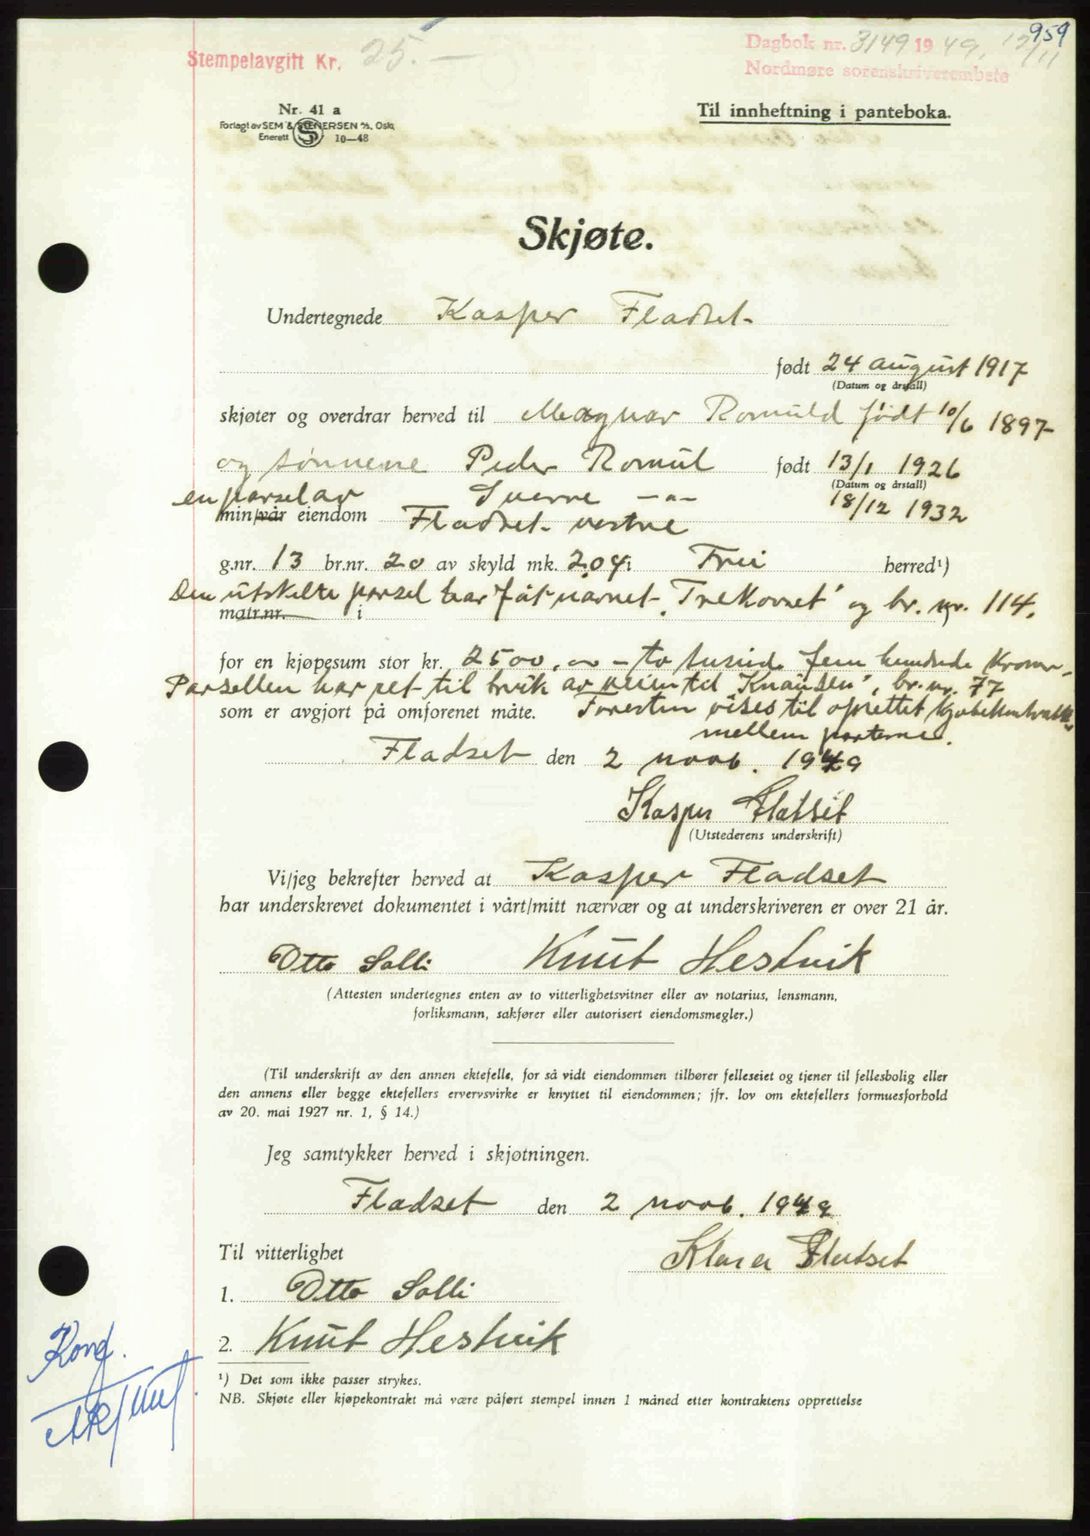 959
Stempelavgift Kr. 25.—
Dagbok nr. 3149 1949. 12/11
Nordmøre sorenskriverembete
Nr. 41 a
Forlagt av SEM & STENERSEN A/S, Oslo
Enerett S 10—48
Til innheftning i panteboka.
Skjøte.
Undertegnede Kasper Fladset
født 24 august 1917
(Datum og årstall)
skjøter og overdrar herved til Magnar Romuld født 10/6 1897
og sønnene Peder Romul født 13/1 1926
(Datum og årstall)
en parsel av Sverre —"— 18/12 1932
min/vår eiendom Fladset vestre
g.nr. 13 br.nr. 20 av skyld mk. 2.04 i Frei herred¹)
Den utskilte parsel har fåt navnet "Trekovret" og br. nr. 114.
matr.nr. i ¹)
for en kjøpesum stor kr. 2500,00 – to tusind fem hundrede kroner
Parsellen har ret til bruk av veien til "Knausen", br. nr. 77
som er avgjort på omforenet måte. Foresten vises til oprettet kjøbekontrakt
mellem parterne.
Fladset den 2 novb. 1949
Kasper Flatset
(Utstederens underskrift)
Vi/jeg bekrefter herved at Kasper Fladset
har underskrevet dokumentet i vårt/mitt nærvær og at underskriveren er over 21 år.
Otto Solli Knut Hestvik
(Attesten undertegnes enten av to vitterlighetsvitner eller av notarius, lensmann,
forliksmann, sakfører eller autorisert eiendomsmegler.)
(Til underskrift av den annen ektefelle, for så vidt eiendommen tilhører felleseiet og tjener til fellesbolig eller
den annens eller begge ektefellers ervervsvirke er knyttet til eiendommen; jfr. lov om ektefellers formuesforhold
av 20. mai 1927 nr. 1, § 14.)
Jeg samtykker herved i skjøtningen.
Fladset den 2 novb. 1949
Til vitterlighet
Klara Flatset
1. Otto Solli
2. Knut Hestvik
Konf.
¹) Det som ikke passer strykes.
NB. Skjøte eller kjøpekontrakt må være påført stempel innen 1 måned etter kontraktens opprettelse